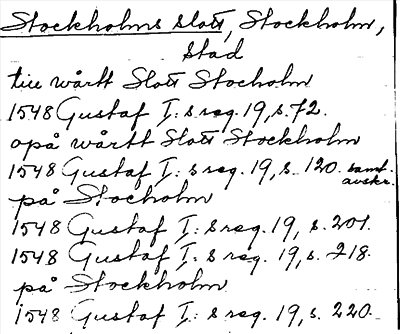 Stockholms slott, Stockholm,
stad
till wårtt Slott Stocholm
1548 Gustaf I: s reg. 19, s. 72.
opå wårtt Slott Stockholm
1548 Gustaf I: s reg. 19, s. 120. samt.
avskr.
på Stocholm
1548 Gustaf I: s reg. 19, s. 201.
1548 Gustaf I: s reg. 19, s. 218.
på Stockholm
1548 Gustaf I: s reg. 19, s. 220.